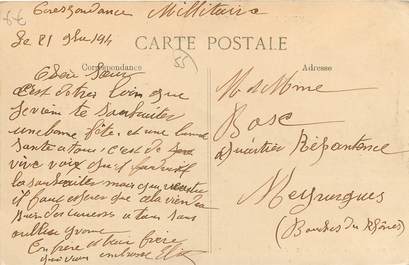 Correspondance Militaire
Le 21 9bre 194
CARTE POSTALE
Correspondance
Adresse
55
Chère Sœur
C'est de très loin que
je viens te souhaiter
une bonne fête, et une bonne
santé a tous c'est de
vive voix qu'il faudrait
la souhaiter mais que
il faut espérer que cela viendra
caresses a tous sans
oublier
ton frère
qui vous embrasse
M et Mme
Bosc
Quartier Répentence
Meyrargues
(Bouches du Rhône)